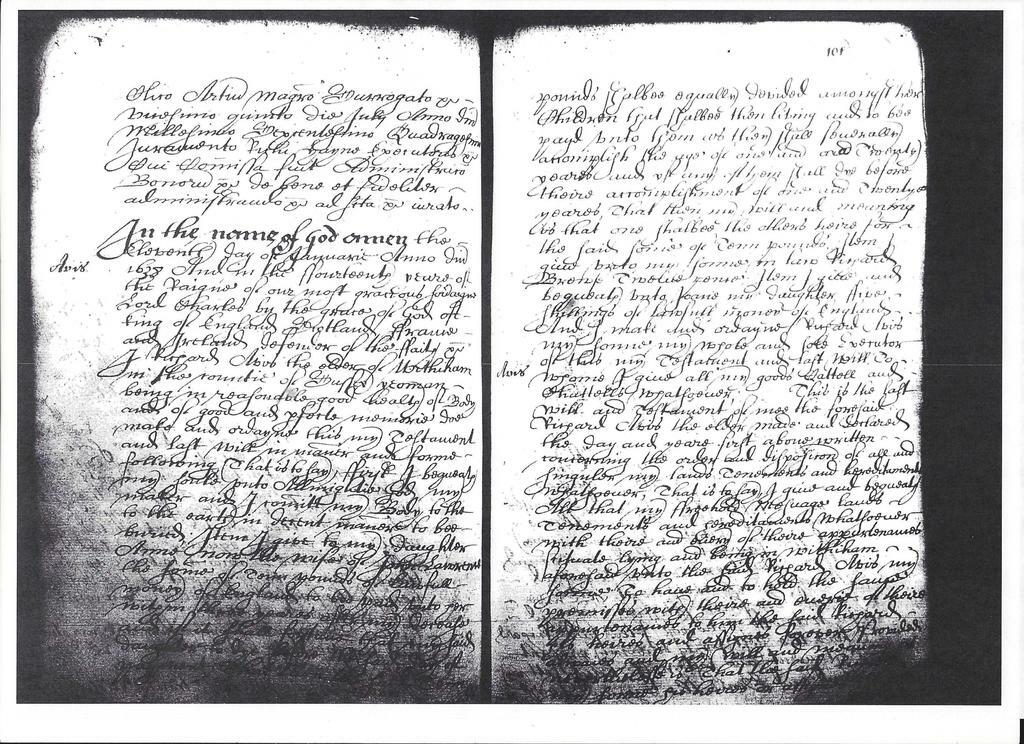 Olivo Artiu magro Surrogato &c
vicesimo quinto die July Anno dni
Millesimo Sexcentesimo Quadragesimo
Juramento Richi Executoris &c
Cui Comissa fuit Administraco
Bonoru &c de bene et fideliter
administrando &c ad sta &c iurato
In the name of god amen the
Eleventh day of Januarie Anno dni
Avis
1638 And in the fourteenth yeare of
the Raigne of our most gracious soveraigne
Lord Charles by the grace of God of
king of England Scotland France
and Ireland defender of the ffaith &c
I Richard Avis the elder of Withiham
in the countie of Sussex yeoman
being in reasonable good healthe of Body
and of good and perfecte memorie doe
make and ordayne this my Testament
and last will in maner and forme
following That is to say ffirst I bequeath
my soule unto Almightie God my
maker and I comitt my Body to the
to the earth in decent maner to bee
buried Item I give to my daughter
Anne the wife of
the some of Tenn pounds of lawfull
money of England to be paid unto her
within after my decease
and
daughter my said
101
pounds shalbee equally devided amongst her
Children that shalbee then living and to bee
payd unto them as they shall severally
accomplish the age of one and and Twenty
yeares and yf any of them shall dye before
theire accomplishment of one and Twentye
yeares That then my will and meaning
is that one shalbee the others heire for
the said some of Tenn pounds Item I
give unto my sonne in law Richard
Twelve pence Item I give and
bequeath unto Joane my daughter ffive
shillings of lawfull money of England
And I make and ordayne Richard Avis
my sonne my whole and sole Executor
Avis
of this my Testament and last will To
whome I give all my goods Cattell and
Chattells whatsoever This is the last
will and Testament of mee the foresaid
Richard Avis the elder made and declared
the day and yeare first above written
concerning the order and disposicon of all and
singuler my lands Tenements and hereditaments
whatsoever That is to say I give and bequeath
All that my freehold Messuage lands
Tenements and hereditaments whatsoever
with theire and every of theire appurtenances
scituate lying and being in Withiham
aforesaid unto the said Richard Avis my
sonne To have and to hold the same
premisses with theire and everie of theire
appurtenances to him the said Richard
his heires and assignes forever Provided
alwaies and my will and meaning
neverthelesse is That the said Richard
my sonne his heires or